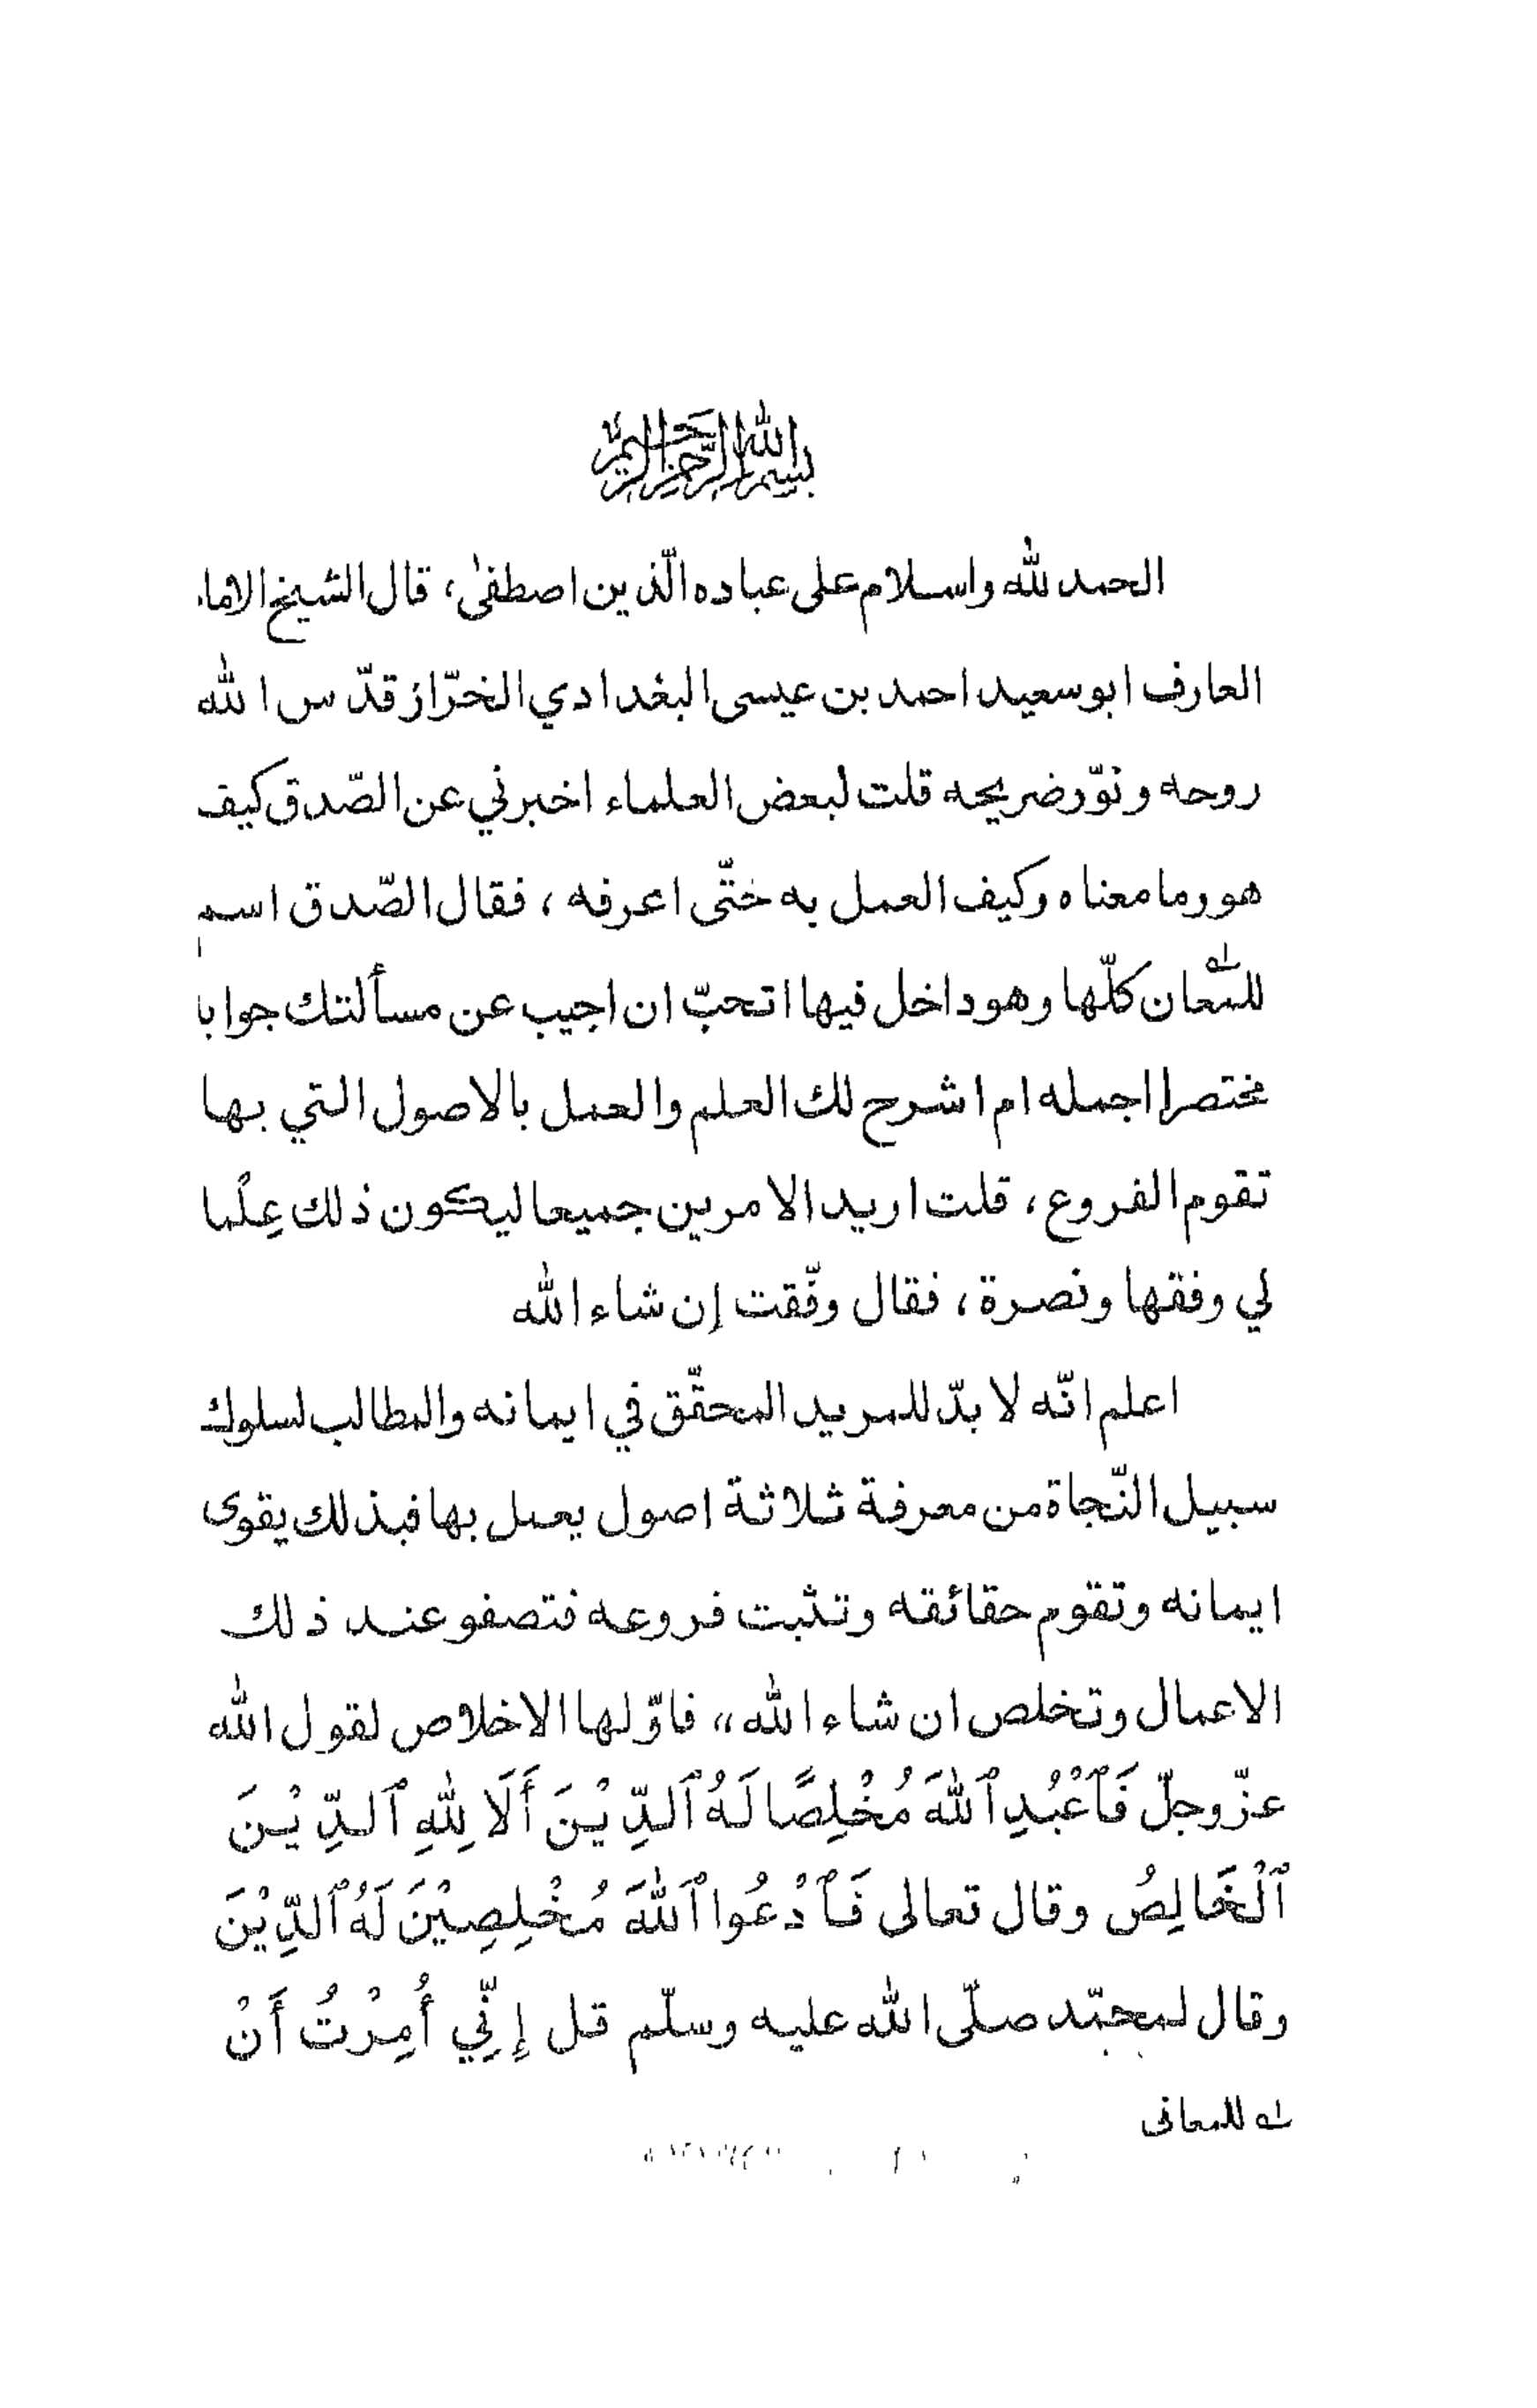 بسم الله الرحمن الرحيم
الحمد لله واسلام على عباده الّذين اصطفىٰ، قال الشيخ الاما
العارف ابو سعيد احمد بن عيسى البغدادي الخرّاز قدّس الله
روحه ونوّر ضريحه قلت لبعض العلماء اخبرني عن الصّدق كيف
هو وما معناه وكيف العمل به حتّى اعرفه، فقال الصّدق اسم
كلّها وهو داخل فيها اتحبّ ان اجيب عن مسألتك جوابا
مختصرا اجمله ام اشرح لك العلم والعمل بالاصول التي بها
تقوم الفروع، قلت اريد الامرين جميعا ليكون ذلك عِلْما
لي وفقها ونصرة، فقال وفّقت إن شاء الله
اعلم انّه لا بدّ للمريد المحقّق في ايمانه والمطالب لسلوك
سبيل النّجاة من معرفة ثلاثة اصول يعمل بها فبذلك يقوى
ايمانه وتقوم حقائقه وتثبت فروعه فتصفو عند ذلك
الاعمال وتخلص ان شاء الله،، فاوّلها الاخلاص لقول الله
عزّوجلّ فَٱعْبُدِ ٱللهَ مُخْلِصًا لَهُ ٱلدِّيْنَ أَلَا لِلهِ ٱلدِّيْنَ
ٱلْخَالِصُ وقال تعالى فَٱدْعُوا ٱللهَ مُخْلِصِيْنَ لَهُ ٱلدِّيْنَ
وقال لمحمّد صلّى الله عليه وسلّم قل إِنِّي أُمِرْتُ أَنْ
له للمعانى